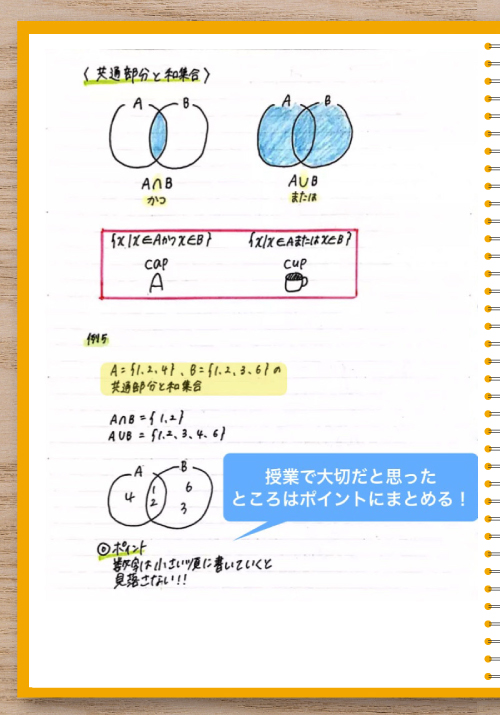 〈共通部分と和集合〉
A B
A B
A∩B
かつ
A∪B
または
{x|x∈Aかつx∈B}
{x|x∈Aまたはx∈B}
cap
cup
例5
A={1,2,4}、B={1,2,3,6}の
共通部分と和集合
A∩B={1,2}
A∪B={1,2,3,4,6}
A B
4 1 2 6 3
授業で大切だと思った
ところはポイントにまとめる！
◎ポイント
数字は小さい順に書いていくと
見落さない!!